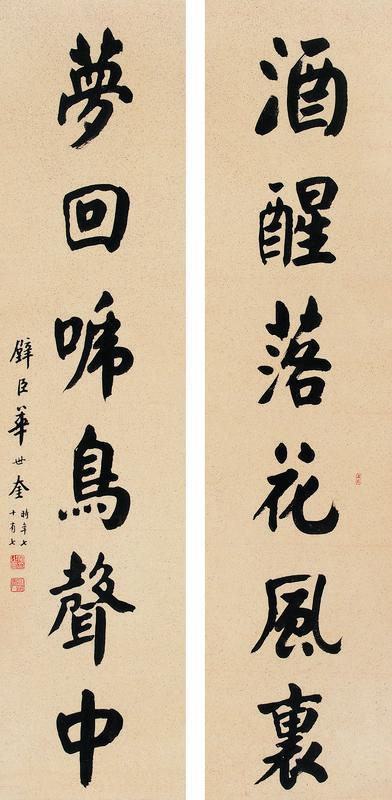 酒醒落花風裏
夢回啼鳥聲中
璧臣華世奎
時年七
十有七